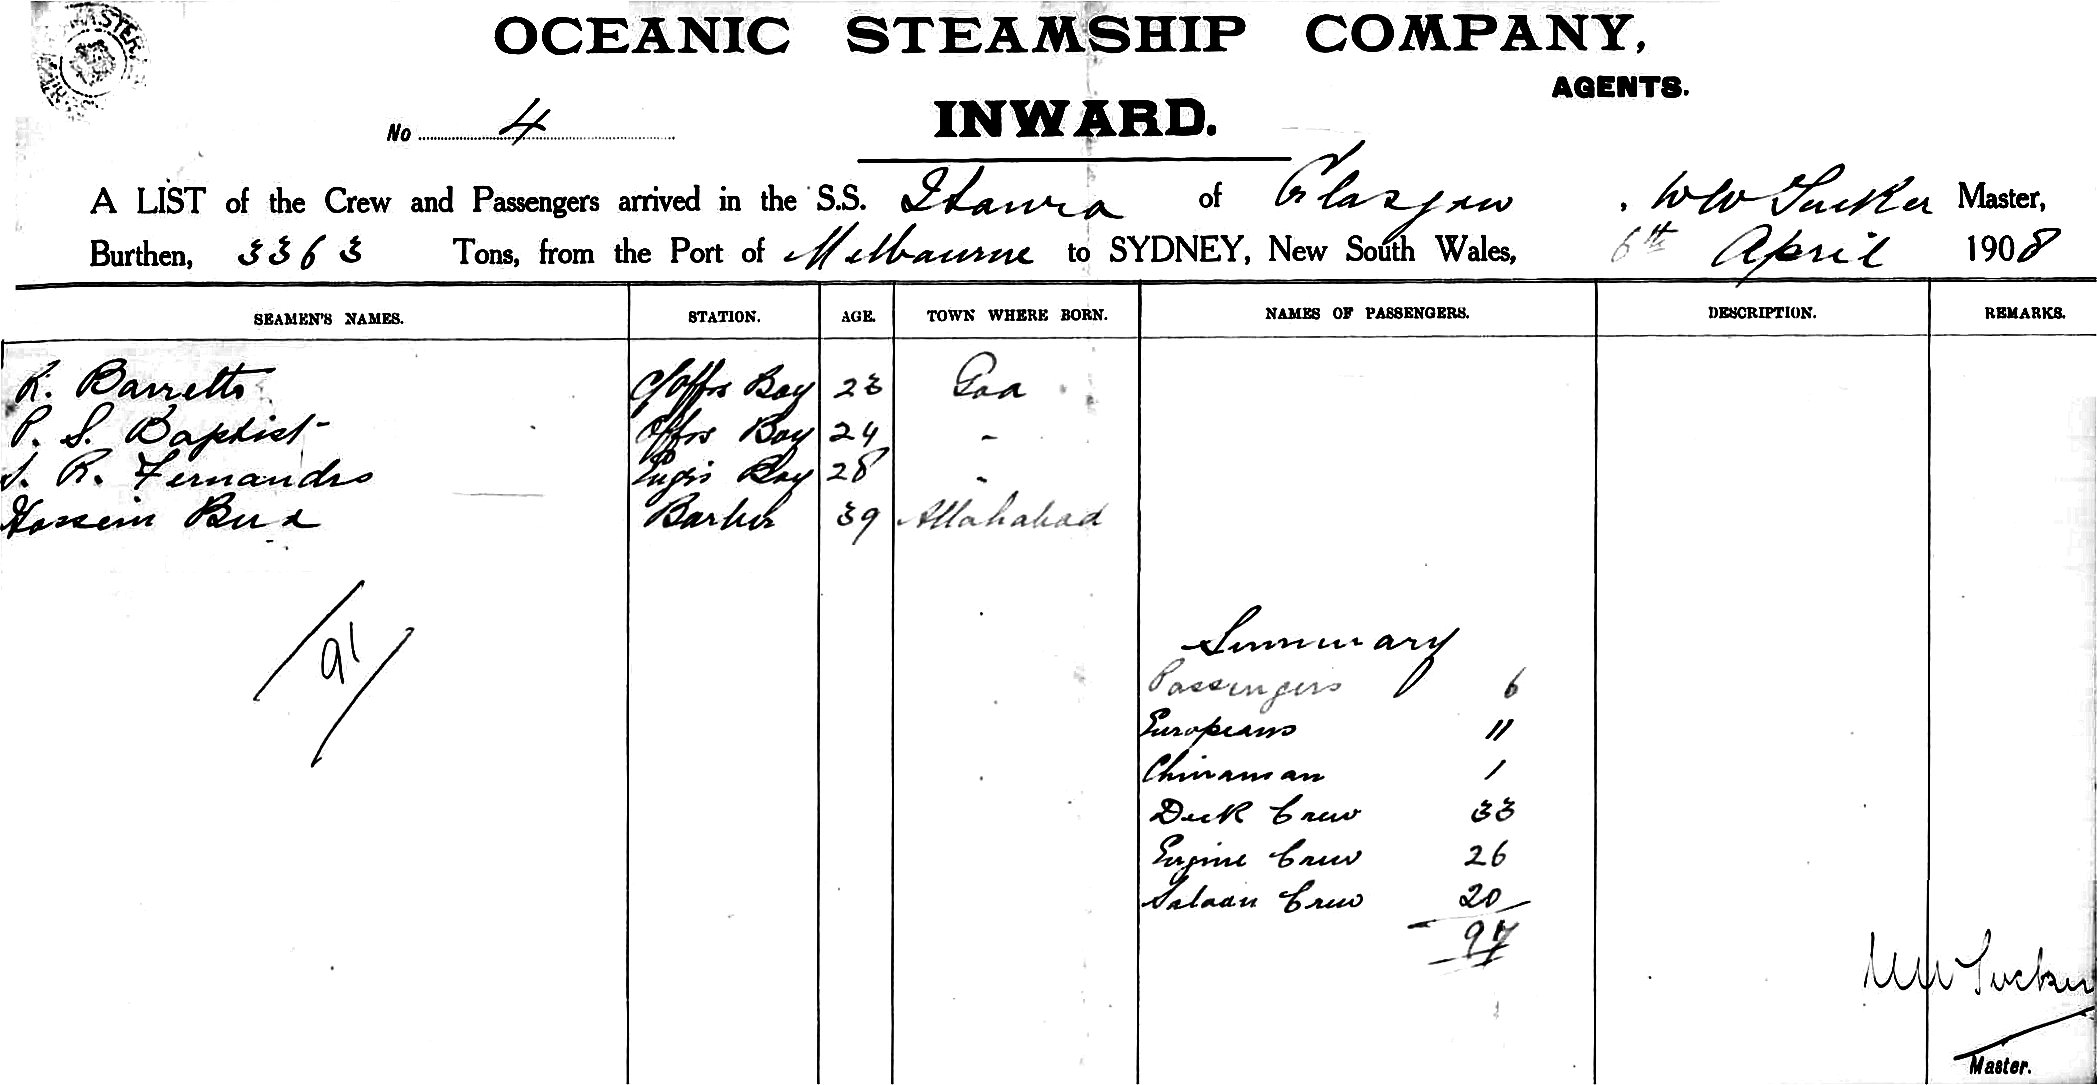 MASTER
OCEANIC STEAMSHIP COMPANY,
AGENTS.
No 4
INWARD.
A LIST of the Crew and Passengers arrived in the S.S. Itaura of Glasgow, WW Tucker Master,
Burthen, 3363 Tons, from the Port of Melbourne to SYDNEY, New South Wales, 6th April 1908
SEAMEN'S NAMES. STATION. AGE. TOWN WHERE BORN. NAMES OF PASSENGERS. DESCRIPTION. REMARKS.
R. Barretto Boy 23 Goa
P. S. Baptist Boy 24 "
R. Fernandes Boy 28 "
Hossein Bux Barber 39 Allahabad
91
Summary
Passengers 6
Europeans 11
Chinaman 1
Deck Crew 33
Engine Crew 26
Saloon Crew 20
97
WW Tucker
Master.